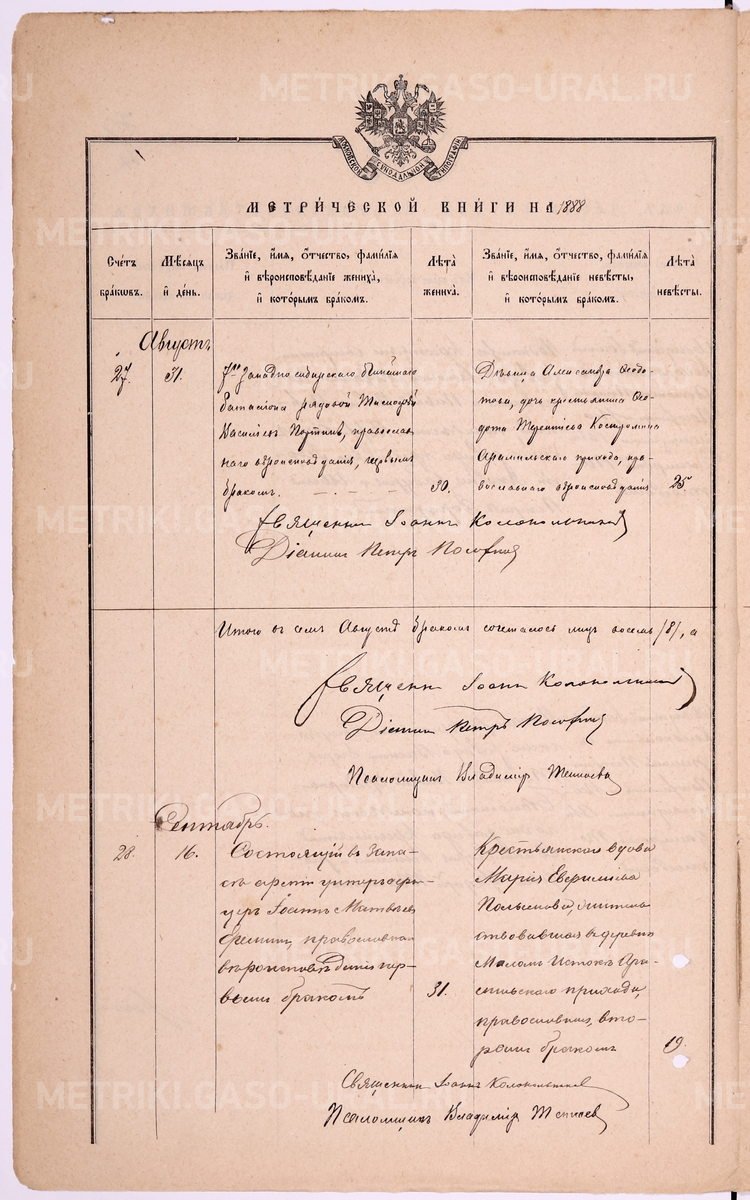 METRIKI.GASO-URAL.RU
МОСКОВСКОЙ СѴНОДАЛЬНОЙ ТИПОГРАФІИ
МЕТРИ́ЧЕСКОЙ КНИ́ГИ НА 1888
Сче́тъ бра́ковъ.
Мѣ́сяцъ и҆ де́нь.
Зва́нїе, и҆́мя, ѻ҆́тчество, фами́лїѧ и҆ вѣроисповѣ́данїе жениха̀, и҆ кото́рымъ бра́комъ.
Лѣ́та жениха̀.
Зва́нїе, и҆́мя, ѻ҆́тчество, фами́лїѧ и҆ вѣроисповѣ́данїе невѣ́сты, и҆ кото́рымъ бра́комъ.
Лѣ́та невѣ́сты.
Августъ
27.
31.
Западно сибирскаго
баталіона рядовой
Василіевъ православ
наго вѣроисповѣданія, первымъ
бракомъ.
30.
Дѣвица Александра Ѳедо
това, дочь крестьянина Ѳе
дота Терентіева Костромина
Арамильскаго прихода, пра
вославнаго вѣроисповѣданія
25.
Священникъ Іоаннъ Колокольниковъ
Діаконъ Петръ
Итого въ семъ Августѣ бракомъ сочеталось лицъ восемь /8/, а
Священникъ Іоаннъ Колокольниковъ
Діаконъ Петръ
Псаломщикъ Владиміръ
Сентябрь.
28.
16.
Состоящій въ запа-
сѣ арміи унтеръ-офи-
церъ Іоаннъ Матвѣевъ
православнаго
вѣроисповѣданія пер-
вымъ бракомъ
31.
Крестьянская вдова
Марія Евфиміева
жительствовавшая въ деревнѣ
Маломъ Истокѣ Ара-
мильскаго прихода,
православная, вто-
рымъ бракомъ
19.
Священникъ Іоаннъ Колокольниковъ
Псаломщикъ Владиміръ